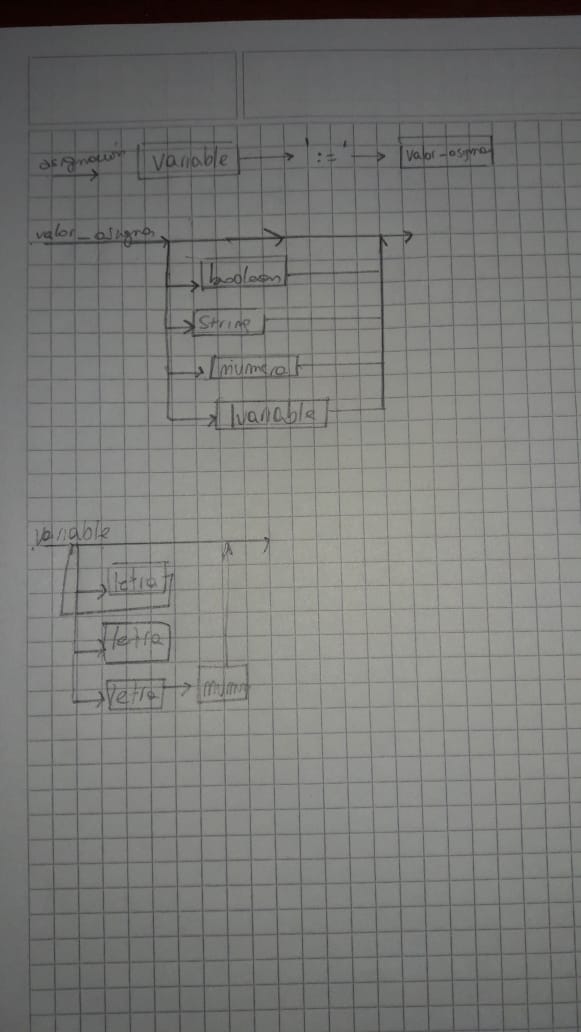 asignación variable ':=' valor-asigna
valor_asigna
boolean
String
numero
variable
variable
letra
letra
letra num